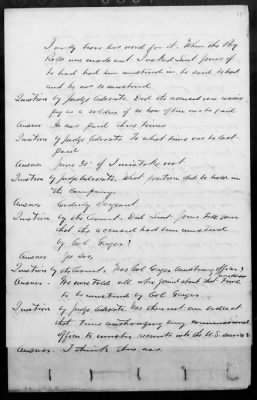 I only have his word for it. When the Pay
Rolls was made out I asked Lieut Jones if
he had had him mustered in. he said he had
and he was so mustered
Question by Judge Advocate. Did the accused ever receive
pay as a soldier if so how often was he paid
Answer He was paid three times
Question by Judge Advocate To what time was he last
paid
Answer June 30"
Question by Judge Advocate. What position did he hold in
the Company
Answer Orderly Sergeant
Question by the Court. Did Lieut Jones tell you
that the accused had been mustered
by Col. Geiger?
Answer Yes Sir,
Question by the Court. Was Col Geiger a mustering officer?
Answer. We were told all who joined about that time
to be mustered by Col Geiger.
Question by Judge Advocate. Was there not an order at
that time authorizing any commissioned
officer to muster recruits into the U.S. service?
Answer. I think there was.